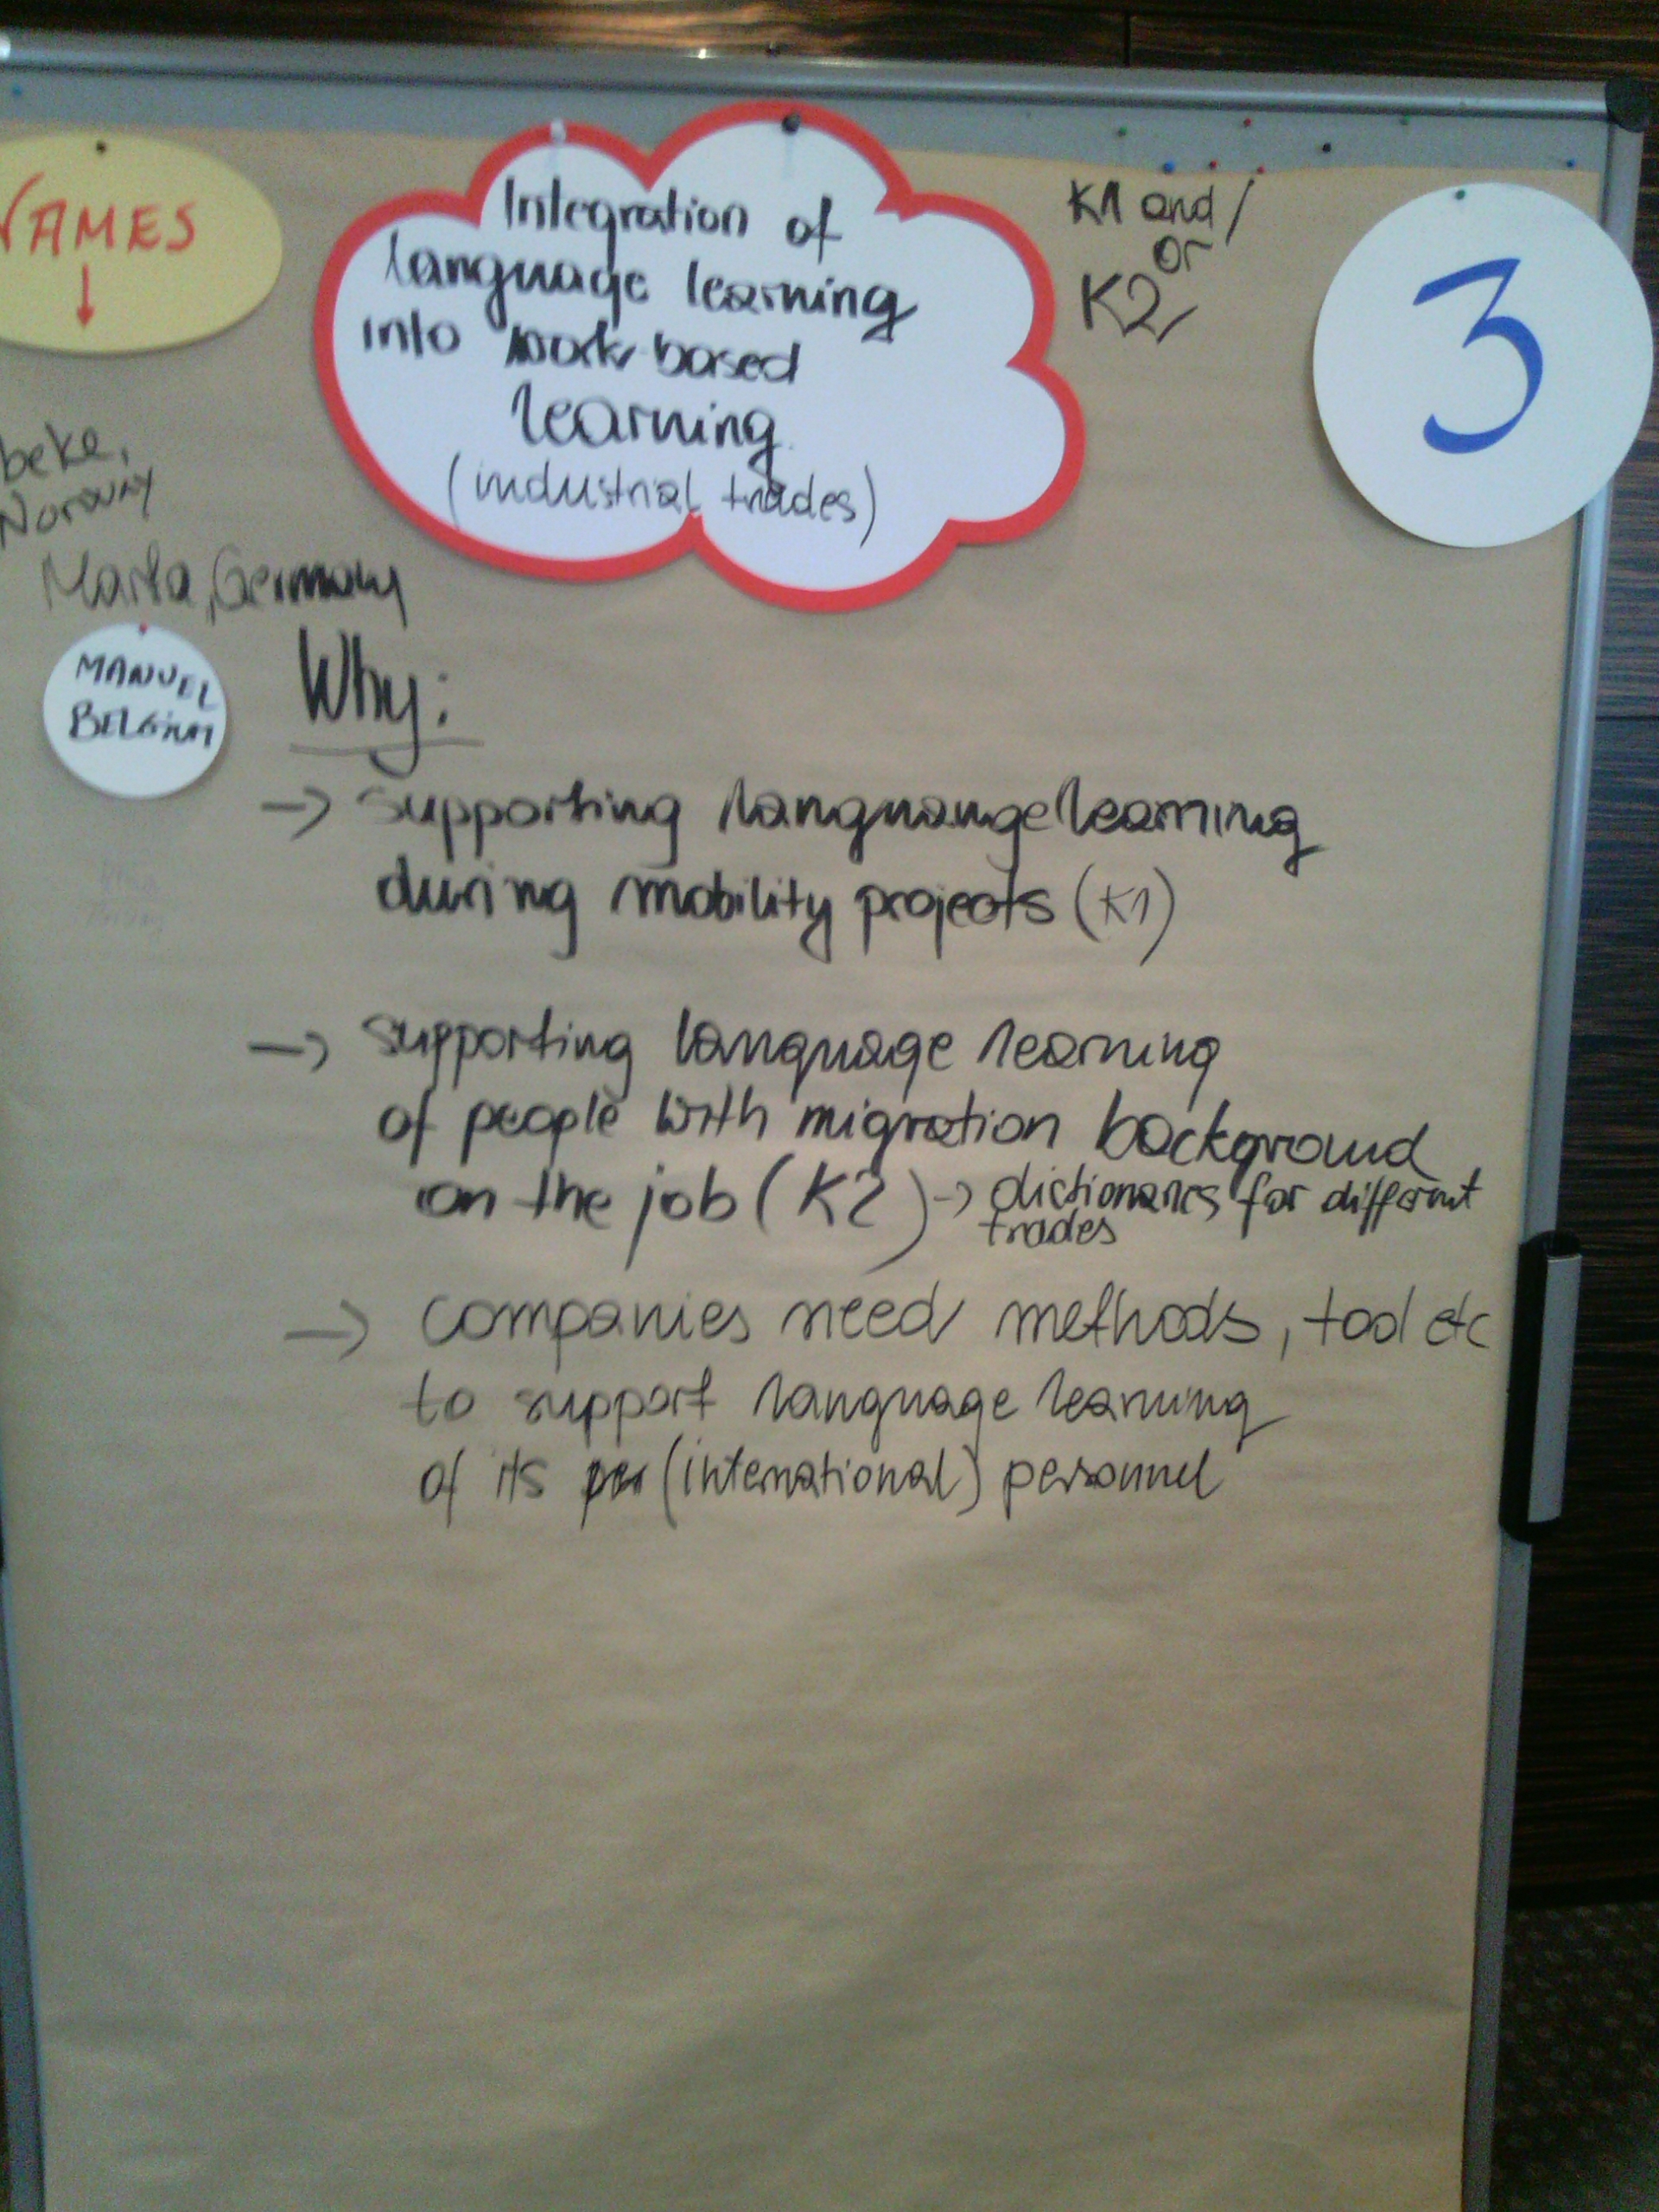 NAMES
Integration of
language learning
into work based
learning
(industrial trades)
K1 and/
or
K2
3
beke,
Norway
Marta, Germany
MANUEL
BELGIUM
Why:
-> supporting languangelearning
during mobility projects (K1)
-> supporting language learning
of people with migration background
on the job (K2) -> dictionaries for different
trades
-> companies need methods, tool etc
to support language learning
of its (international) personnel